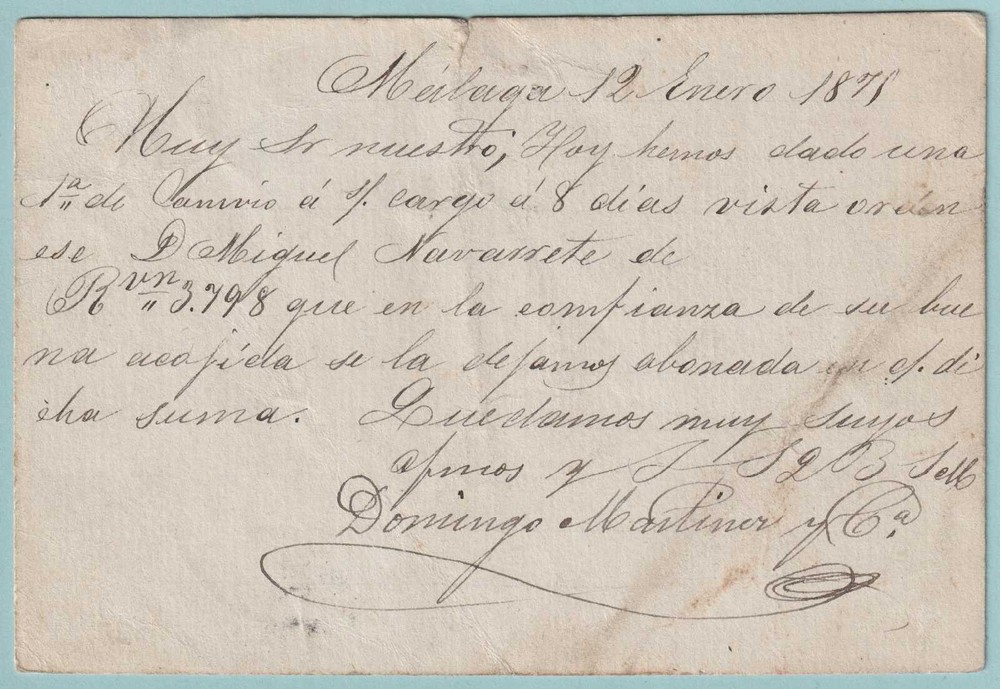 Málaga 12 Enero 1875
Muy Sr nuestro, Hoy hemos dado una
1ª de Camvio á s/. cargo á 8 dias vista orden
ese D Miguel Navarrete de
Rvn 3.798 que en la comfianza de su bue
na acojida se la dejamos abonada en c/. di
cha suma. Quedamos muy suyos
afmos y S S Q B S M
Domingo Martinez y Cª.